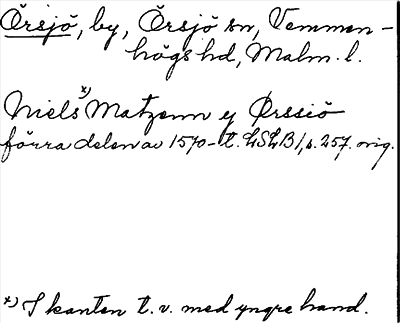 Örsjö, by, Örsjö sn, Vemmen-
högs hd, Malm. l.
Niels x) Matzenn y Ørssiö
förra delen av 1570-t. LSLB 1, s. 257. orig.
x) I kanten t. v. med yngre hand.